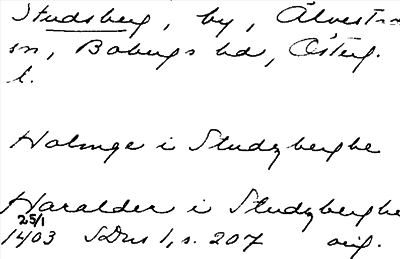 Studsberg, by, Älvestra
sn, Bobergs hd, Österg.
l.
Holmge i Studzberghe
Haralder i Studzberghe
25/1
1403 SDns 1, s. 207 orig.